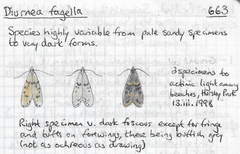 Diurnea fagella 663
Species highly variable from pale sandy specimens
to very dark forms.
3 specimens to
actinic light among
beeches, Hursley Park
13.iii.1998
Right specimen v. dark fuscous except for fringe
and tufts on forewings, these being buffish grey
(not as ochreous as drawing)